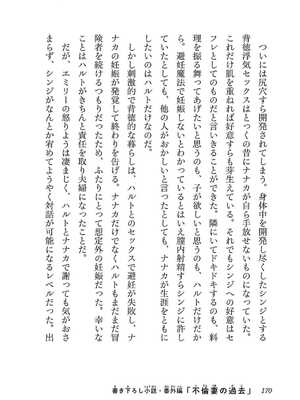 ついには尻穴すら開発されてしまう。身体中を開発し尽くしたシンジとする
背徳浮気セックスはとっくの昔にナナカが手放せないものになっていた。
これだけ肌を重ねれば好意すらも芽生えている。それでもシンジへの好意はセ
フレとしてのものだと言いきることができた。隣にいてドキドキするのも、料
理を振る舞ってあげたいと思うのも、子が欲しいと思うのも、ハルトだけだか
ら。避妊魔法で妊娠しないとわかっているとはいえ膣内射精すらシンジに許し
ていたとしても、他の人がおかしいと言ったとしても、ナナカが生涯をともに
したいのはハルトだけなのだ。
しかし刺激的で背徳的な暮らしは、ハルトとのセックスで避妊が失敗し、ナ
ナカの妊娠が発覚して終わりを告げる。ナナカだけでなくハルトもまだまだ冒
険者を続けるつもりだったため、ふたりにとって想定外の妊娠だった。幸いな
ことはハルトがきちんと責任を取り夫婦になったことだ。
だが、エミリーの怒りようは凄まじく、ハルトとナナカで謝っても気がおさ
まらず、シンジがなんとか宥めてようやく対話が可能になるレベルだった。出
書き下ろし小説・番外編「不倫妻の過去」
170